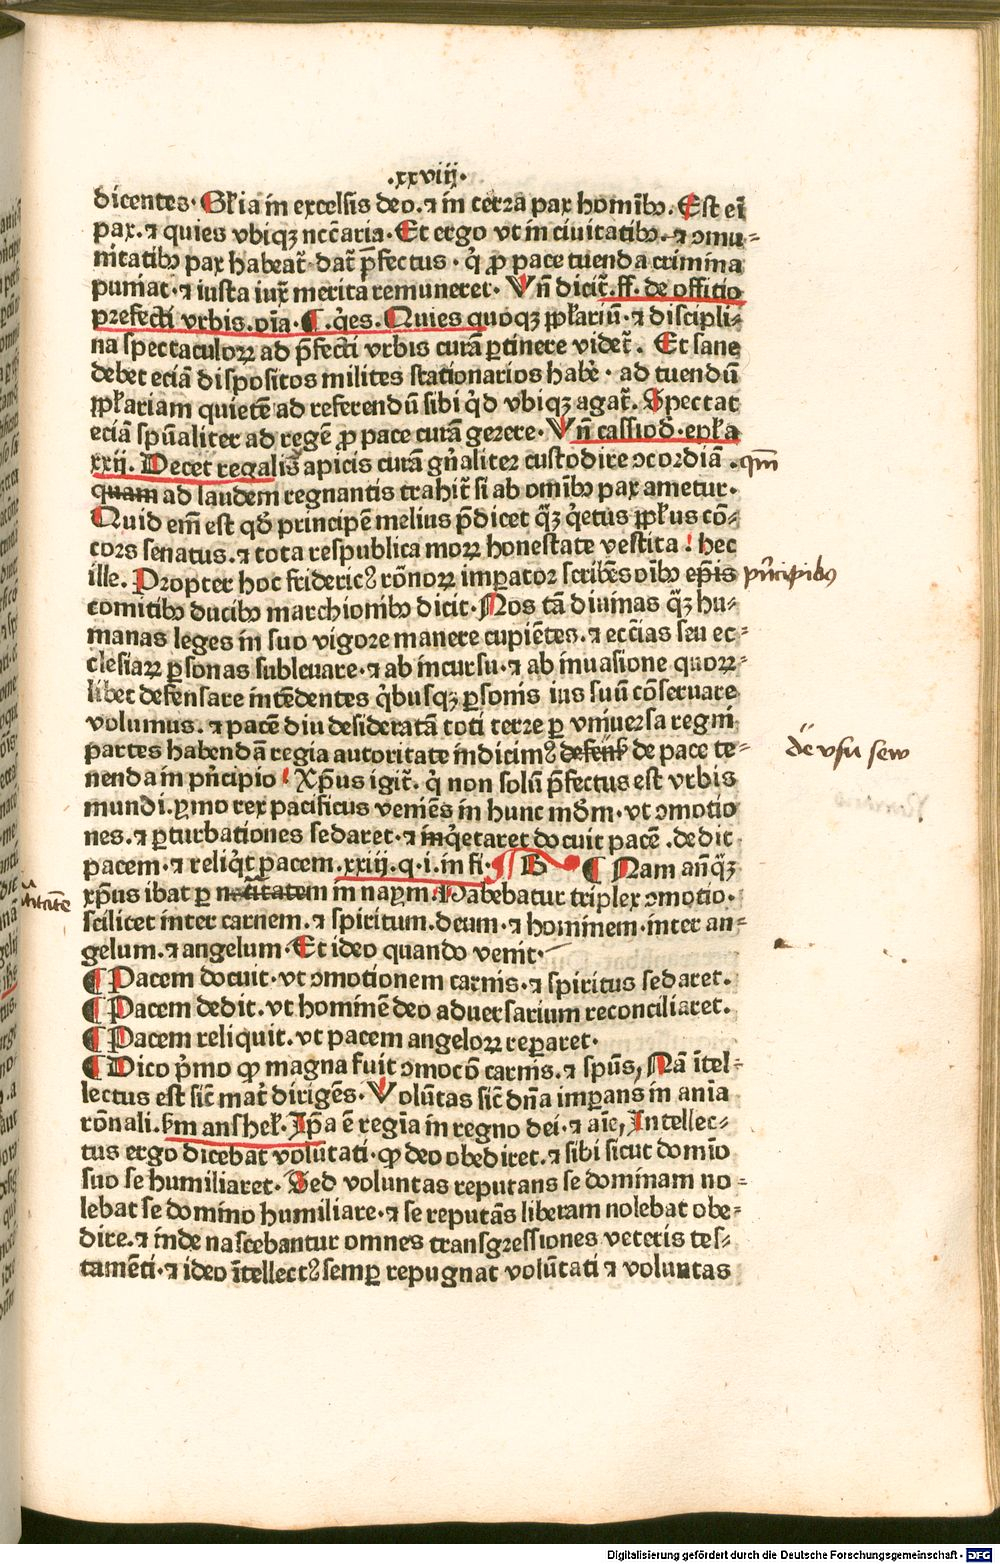 .xxviij.
dicentes. Gl̄ia in excelsis deo. ⁊ in terra pax homīb9. Est ei̅
pax. ⁊ quies vbiqꝫ nccāria. Et ergo vt in ciuitatib9. ⁊ ꝯmu-
nitatib9 pax habeat̄ dat̄ p̄fectus. q̇ ꝓ pace tuenda crimina
puniat. ⁊ iusta iur̄ merita remuneret. Vn̄ dicit̄. ff. de officio
prefecti vrbis. oīa. ¶ .q̇es. Quies quoqꝫ pp̄lariū. ⁊ discipli-
na spectaculoꝝ ad p̄fecti vrbis curā ꝑtinere videt̄. Et sane
debet eciā dispositos milites stationarios habe᷑. ad tuendū
pp̄lariam quietē ad referendū sibi q̇d vbiqꝫ agat̄. Spectat
eciā spūaliter ad regē ꝓ pace curā gerere. Vn̄ cassiod̄. ep̄la
xxij. Decet regalis apicis curā gn̄aliter custodire ꝯcordiā. qm̄
quam ad laudem regnantis trahit̄ si ab omīb9 pax ametur.
Quid em̄ est qd̄ principē melius p̄dicet q̄ꝫ q̇etus pp̄lus cō-
cors senatus. ⁊ tota respublica moꝝ honestate vestita! hec
ille. Propter hoc frideric9 rōnoꝝ imperator scribēs oīb9 ep̄is pn̄cipibus
comitib9 ducib9 marchionib9 dicit. Nos tā diuinas q̄ꝫ hu-
manas leges in suo vigore manere cupiētes. ⁊ eccīas seu ec-
clesiaꝝ ꝑsonas subleuare. ⁊ ab incursu. ⁊ ab inuasione quoꝝ-
libet defensare intēdentes q̇busqꝫ ꝑsonis ius suū cōseruare
volumus. ⁊ pacē diu desideratā toti terre ꝑ vniuersa regni
partes habendā regia autoritate indicim9 defens̄ de pace te- de vsu sew
nenda in pn̄cipio! Xp̄us igit̄. q̇ non solū p̄fectus est vrbis
mundi. ymo rex pacificus veniēs in hunc mdm̄. vt ꝯmotio
nes. ⁊ ꝑturbationes sedaret. ⁊ inq̇etaret docuit pacē. dedit
pacem. ⁊ reliq̇t pacem. xxiij. q. i. in fi. B ¶ Nam an̄q̄ꝫ
xp̄us ibat ꝑ netitatem in naym. Habebatur triplex ꝯmotio.
scilicet inter carnem. ⁊ spiritum. deum. ⁊ hominem. inter an-
gelum. ⁊ angelum. Et ideo quando venit.
¶ Pacem docuit. vt ꝯmotionem carnis. ⁊ spiritus sedaret.
¶ Pacem dedit. vt hominē deo aduersarium reconciliaret.
¶ Pacem reliquit. vt pacem angeloꝝ reparet.
¶ Dico p̄mo ꝙ magna fuit ꝯmocō carnis. ⁊ spūs, Nā ītel-
lectus est sic̄ mat̄ dirigēs. Volūtas sic̄ dn̄a imꝑans in anīa
rōnali. s̄m anshel̄. Ip̄a ē regīa in regno dei. ⁊ aīe, Intellec-
tus ergo dicebat volūtati. ꝙ deo obediret. ⁊ sibi sicut domīo
suo se humiliaret. Sed voluntas reputans se dominam no-
lebat se domino humiliare. ⁊ se reputās liberam nolebat obe-
dire. ⁊ inde nascebantur omnes transgressiones veteris tes-
tamēti. ⁊ ideo ītellect9 semꝑ repugnat volūtati ⁊ voluntas
Digitalisierung gefördert durch die Deutsche Forschungsgemeinschaft - DFG